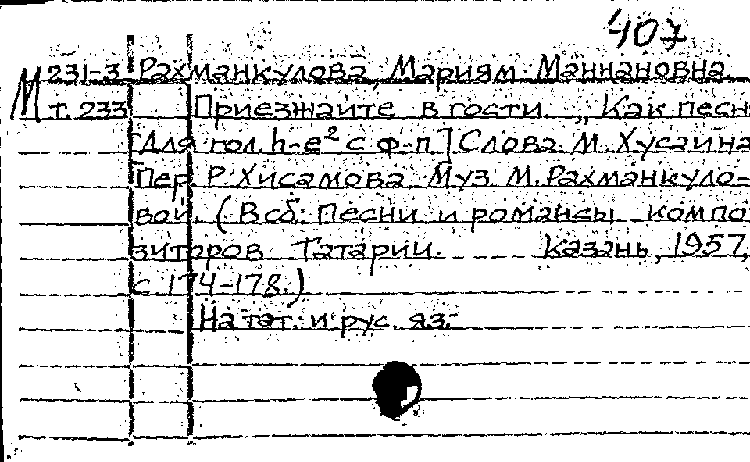 407
М 231-3 Рахманкулова, Мариям Маннановна
т. 233 Приезжайте в гости. „Как песн
[Для гол. h-e² с ф-п.] Слова М. Хусаина
Пер. Р. Хисамова. Муз. М. Рахманкуло-
вой. (В сб: Песни и романсы компо
зиторов Татарии. Казань, 1957,
с. 174-178.)
На тат. и рус. яз.